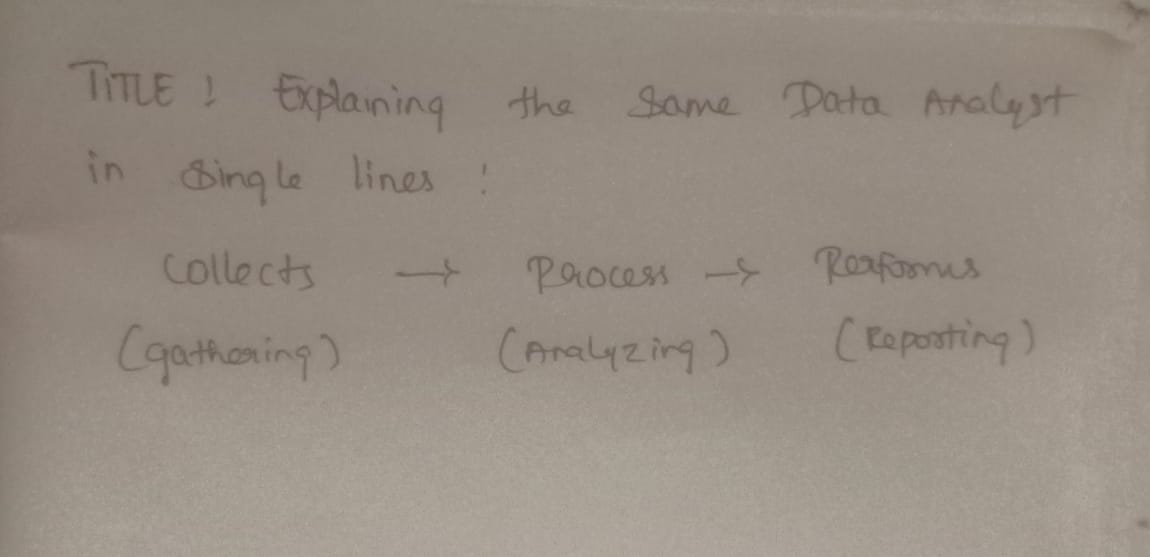 TITLE : Explaining the Same Data Analyst
in Single lines :
Collects → Process → Performs
(gathering) (Analyzing) (Reporting)